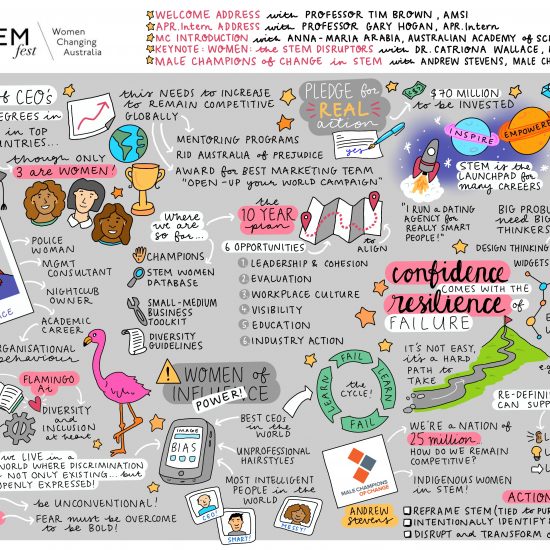 EM
fest
Women
Changing
Australia
WELCOME ADDRESS with PROFESSOR TIM BROWN, AMSI
APR.Intern ADDRESS with PROFESSOR GARY HOGAN, APR.Intern
MC INTRODUCTION with ANNA-MARIA ARABIA, AUSTRALIAN ACADEMY of SC
KEYNOTE: WOMEN: the STEM DISRUPTORS with DR. CATRIONA WALLACE,
MALE CHAMPIONS of CHANGE in STEM with ANDREW STEVENS, MALE CH
of CEO's
EGREES in
in TOP
NTRIES...
though ONLY
3 are WOMEN!
this NEEDS to INCREASE
to REMAIN COMPETITIVE
GLOBALLY
MENTORING PROGRAMS
RID AUSTRALIA of PREJUDICE
AWARD for BEST MARKETING TEAM
"OPEN-UP your WORLD CAMPAIGN"
PLEDGE for
REAL
action
yes
$70 MILLION
to be INVESTED
INSPIRE
EMPOWER
STEM is the
LAUNCHPAD for
many CAREERS
POLICE
WOMAN
MGMT
CONSULTANT
NIGHTCLUB
OWNER
ACADEMIC
CAREER
NCE
Where
we are
so far...
CHAMPIONS
STEM WOMEN
DATABASE
SMALL-MEDIUM
BUSINESS
TOOLKIT
DIVERSITY
GUIDELINES
the
10 YEAR
plan
6 OPPORTUNITIES
to
ALIGN
1 LEADERSHIP & COHESION
2 EVALUATION
3 WORKPLACE CULTURE
4 VISIBILITY
5 EDUCATION
6 INDUSTRY ACTION
"I RUN a DATING
AGENCY for
REALLY SMART
PEOPLE!"
BIG PROBL
need BIG
THINKERS
DESIGN THINKING
WIDGETS
confidence
COMES WITH THE
resilience of
FAILURE
IT'S NOT EASY,
it's a HARD
PATH to
TAKE
e.g
RE-DEFINI
CAN SUPP
RGANISATIONAL
behaviour
FLAMINGO
Ai
DIVERSITY
and
INCLUSION
at heart
we LIVE in a
WORLD WHERE DISCRIMINATION
NOT ONLY EXISTING...but
OPENLY EXPRESSED!
be UNCONVENTIONAL!
FEAR must be OVERCOME
to be BOLD!
WOMEN of
INFLUENCE
POWER!
IMAGE
BIAS
BEST CEOS
in the
WORLD
UNPROFESSIONAL
HAIRSTYLES
MOST INTELLIGENT
PEOPLE in the
WORLD
CEO!
SMART!
MESSY!
FAIL
LEARN
FAIL
LEARN
the
CYCLE!
WE'RE a NATION of
25 million
HOW DO WE REMAIN
COMPETITIVE?
INDIGENOUS WOMEN
in STEM!
MALE CHAMPIONS
OF CHANGE
ANDREW
stevens
ACTION
REFRAME STEM (TIED to PUR
INTENTIONALLY IDENTIFY
DISRUPT and TRANSFORM